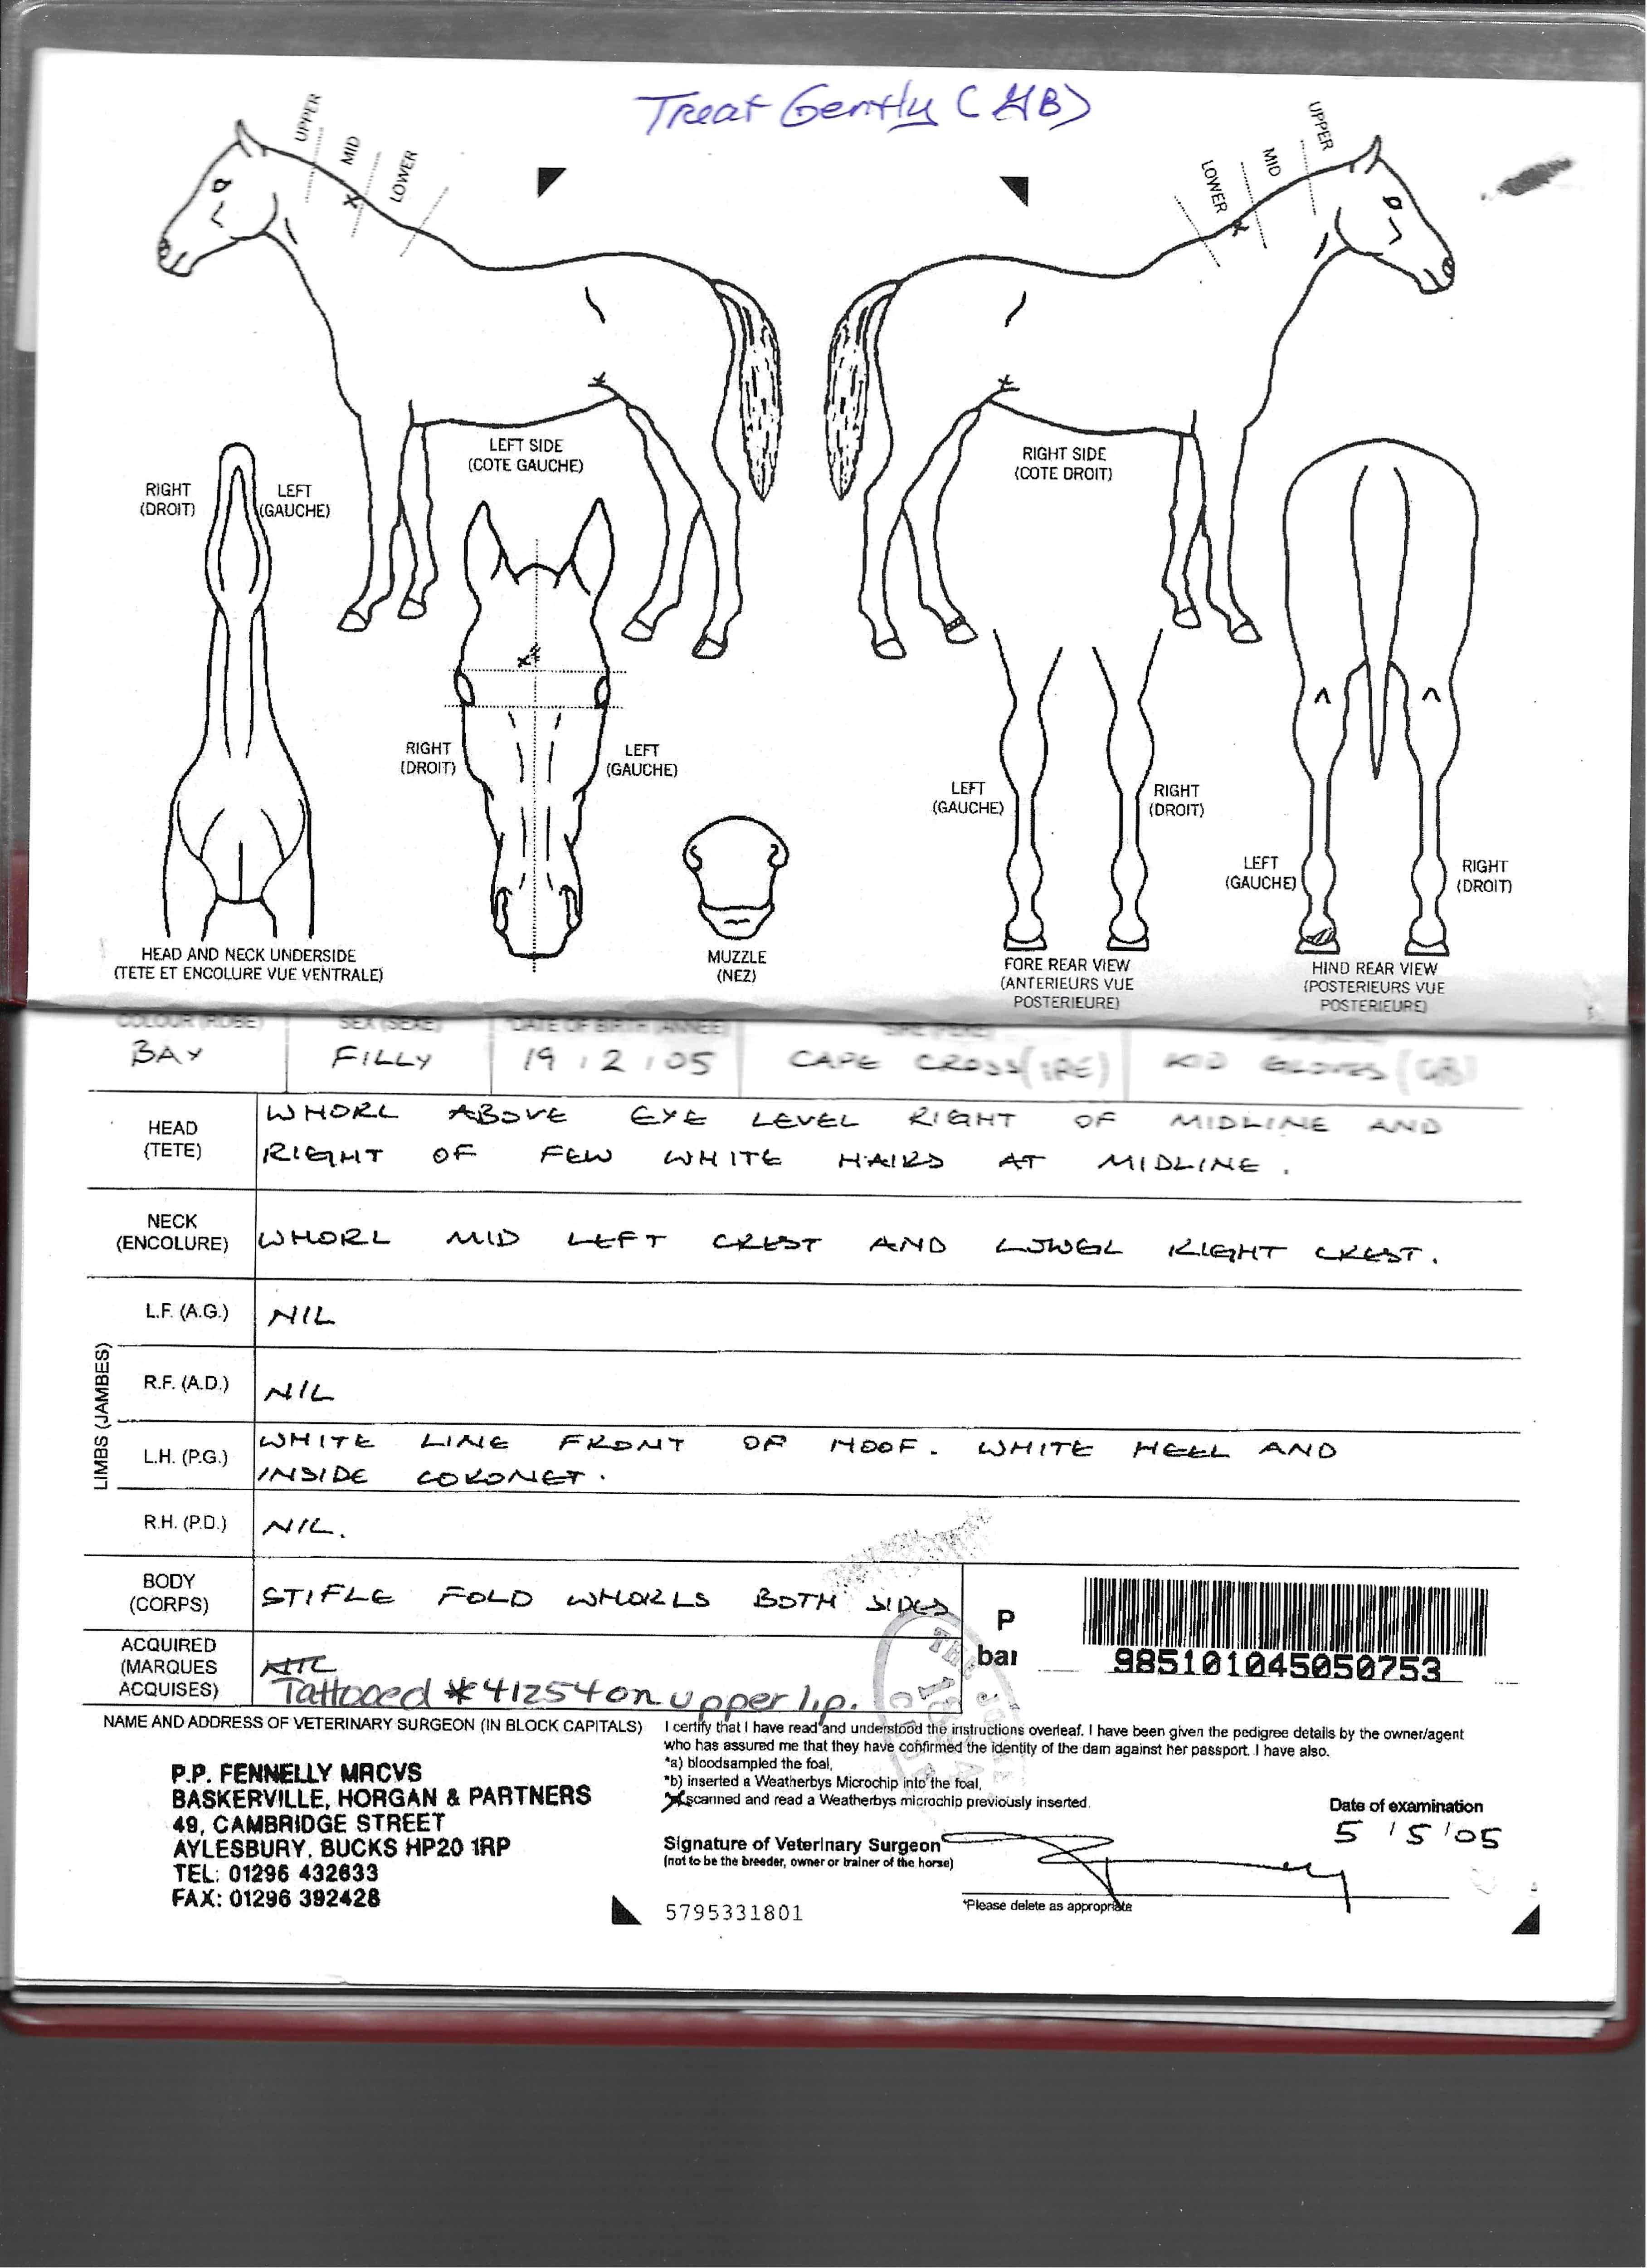 Treat Gently (GB)
UPPER
MID
LOWER
UPPER
MID
LOWER
LEFT SIDE
(COTE GAUCHE)
RIGHT SIDE
(COTE DROIT)
RIGHT
(DROIT)
LEFT
(GAUCHE)
RIGHT
(DROIT)
LEFT
(GAUCHE)
LEFT
(GAUCHE)
RIGHT
(DROIT)
LEFT
(GAUCHE)
RIGHT
(DROIT)
HEAD AND NECK UNDERSIDE
(TETE ET ENCOLURE VUE VENTRALE)
MUZZLE
(NEZ)
FORE REAR VIEW
(ANTERIEURS VUE
POSTERIEURE)
HIND REAR VIEW
(POSTERIEURS VUE
POSTERIEURE)
COLOUR (ROBE) SEX (SEXE) *DATE OF BIRTH (ANNEE) SIRE (PERE)
BAY FILLY 19 . 2 . 05 CAPE CROSS (IRE) KID GLOVES (GB)
HEAD
(TETE)
WHORL ABOVE EYE LEVEL RIGHT OF MIDLINE AND
RIGHT OF FEW WHITE HAIRS AT MIDLINE.
NECK
(ENCOLURE)
WHORL MID LEFT CREST AND LOWER RIGHT CREST.
LIMBS (JAMBES)
L.F. (A.G.) NIL
R.F. (A.D.) NIL
L.H. (P.G.)
WHITE LINE FRONT OF HOOF. WHITE HEEL AND
INSIDE CORONET.
R.H. (P.D.) NIL.
BODY
(CORPS)
STIFLE FOLD WHORLS BOTH SIDES
P
bar
985101045050753
ACQUIRED
(MARQUES
ACQUISES)
NIL
Tattooed *41254 on upper lip.
THE JOCKEY CLUB
NAME AND ADDRESS OF VETERINARY SURGEON (IN BLOCK CAPITALS)
P.P. FENNELLY MRCVS
BASKERVILLE, HORGAN & PARTNERS
49, CAMBRIDGE STREET
AYLESBURY, BUCKS HP20 1RP
TEL: 01296 432633
FAX: 01296 392428
I certify that I have read and understood the instructions overleaf. I have been given the pedigree details by the owner/agent
who has assured me that they have confirmed the identity of the dam against her passport. I have also.
*a) bloodsampled the foal,
*b) inserted a Weatherbys Microchip into the foal,
scanned and read a Weatherbys microchip previously inserted.
Date of examination
5 ' 5 ' 05
Signature of Veterinary Surgeon
(not to be the breeder, owner or trainer of the horse)
*Please delete as appropriate
5795331801